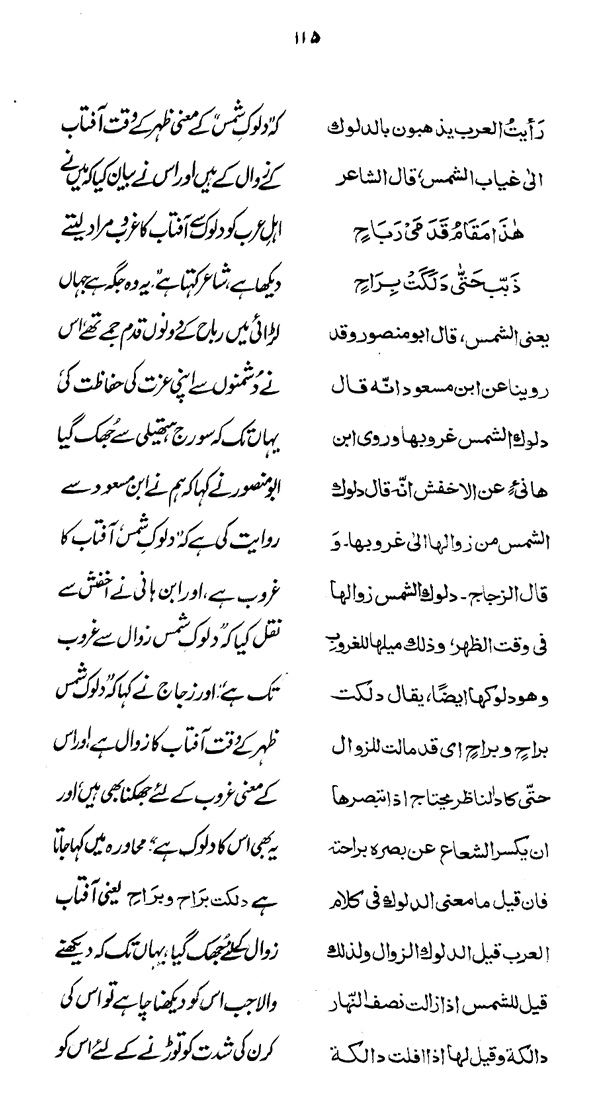 ۱۱۵
رَأیتُ العرب یذهبون بالدلوك
الیٰ غیاب الشمس، قال الشاعر
هٰذَا مَقَامُ قَدَمَیْ رَبَاحٍ
ذَبّب حَتّٰی دَلَكَتْ بِرَاحٍ
یعنی الشمس، قال ابو منصور وقد
روینا عن ابن مسعود انّه قال
دلوك الشمس غروبها وروی ابن
هانیٔ عن الاخفش انّه قال دلوك
الشمس من زوالها الیٰ غروبها۔ وَ
قال الزجاج۔ دلوك الشمس زوالها
فی وقت الظهر، وذلك میلها للغروب
وهو دلوكها ایضًا، یقال دلكت
براحٍ وبراحِ ای قد مالت للزوال
حتّٰی كاد الناظر یحتاج اذا تبصرها
ان یكسر الشعاع عن بصره براحته
فان قیل ما معنی الدلوك فی كلام
العرب قیل الدلوك الزوال ولذلك
قیل للشمس اذا زالت نصف النهار
دالكة وقیل لها اذا افلت دالكة
کہ ”دلوکِ شمس“ کے معنی ظہر کے وقت آفتاب
کے زوال کے ہیں اور اس نے بیان کیا کہ میں نے
اہلِ عرب کو دلوک سے آفتاب کا غروب مراد لیتے
دیکھا ہے، شاعر کہتا ہے، یہ وہ جگہ ہے جہاں
لڑائی میں رباح کے دونوں قدم جمے تھے اس
نے دشمنوں سے اپنی عزت کی حفاظت کی
یہاں تک کہ سورج ہتھیلی سے جھک گیا
ابو منصور نے کہا کہ ہم نے ابن مسعود سے
روایت کی ہے کہ ”دلوکِ شمس“ آفتاب کا
غروب ہے، اور ابن ہانی نے اخفش سے
نقل کیا کہ ”دلوکِ شمس زوال سے غروب
تک ہے“ اور زجاج نے کہا کہ ”دلوکِ شمس
ظہر کے وقت آفتاب کا زوال ہے، اور اس
کے معنی غروب کے لئے جھکنا بھی ہیں، اور
یہ بھی اس کا دلوک ہے“ محاورہ میں کہا جاتا
ہے دلکت بَرَاحِ وبَراحٍ یعنی آفتاب
زوال کیلئے جھک گیا، یہاں تک کہ دیکھنے
والا جب اس کو دیکھنا چاہے تو اس کی
کرن کی شدت کو توڑنے کے لئے اس کو